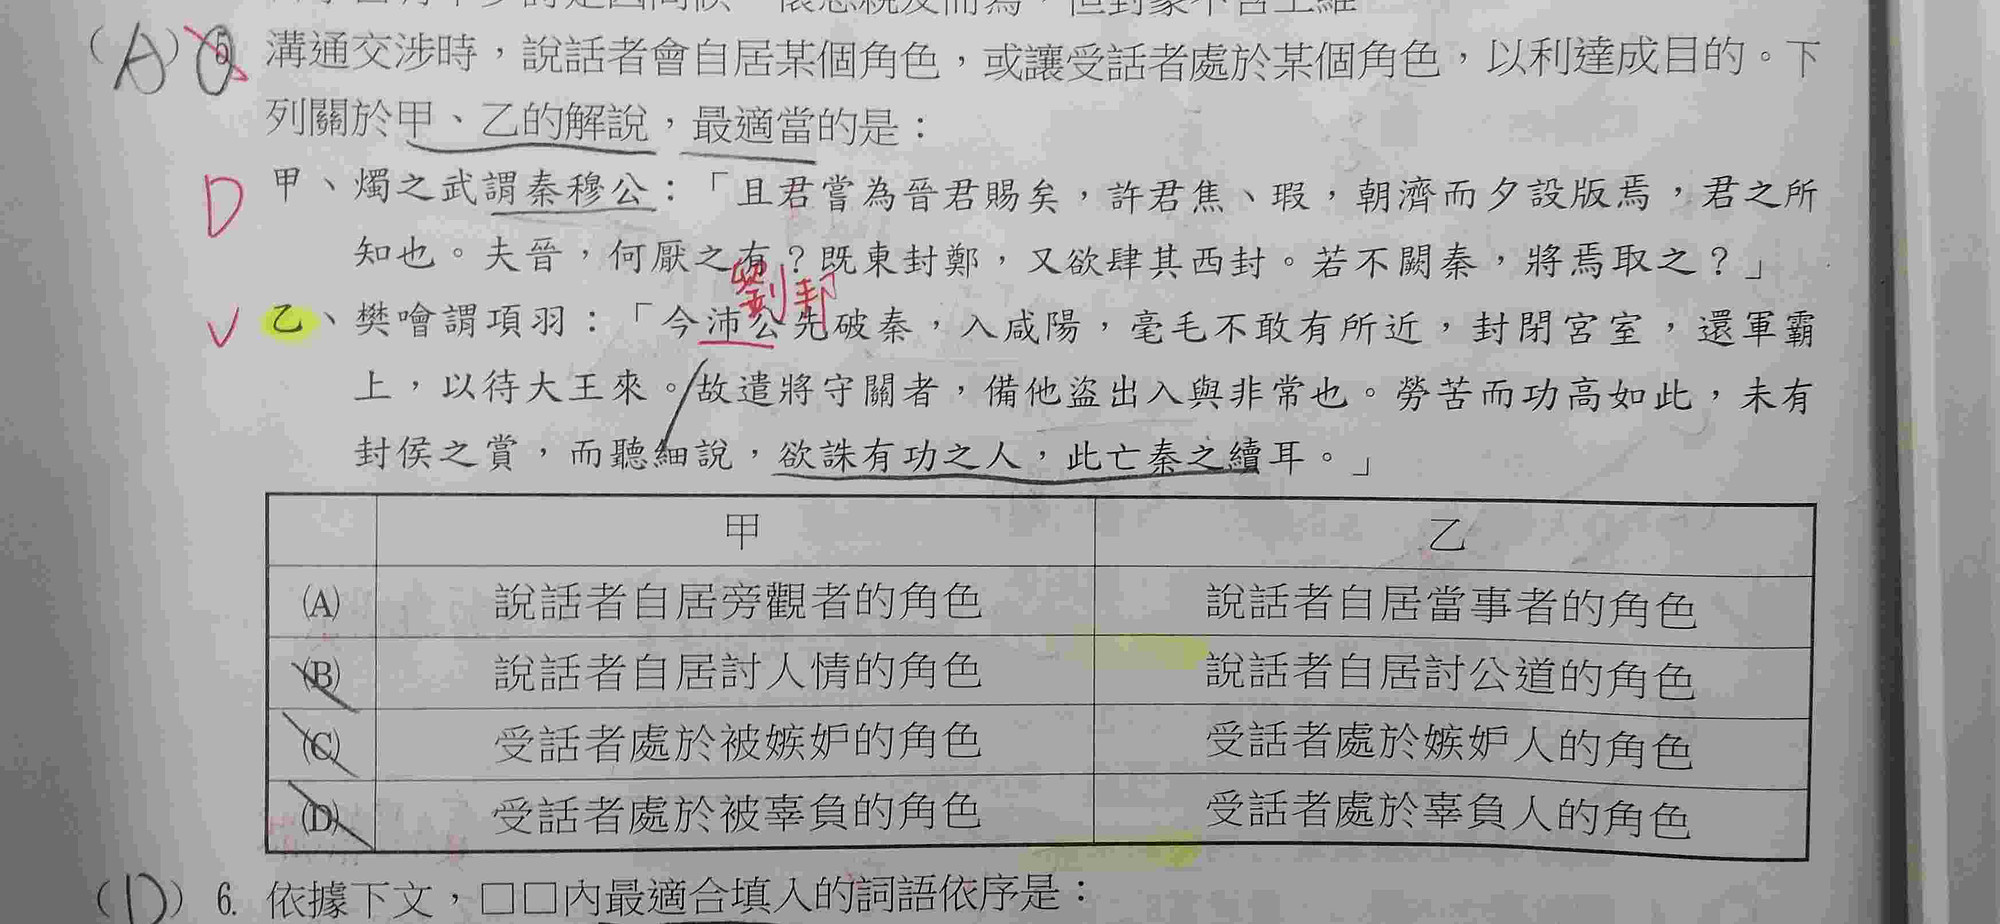 (A) 5. 溝通交涉時，說話者會自居某個角色，或讓受話者處於某個角色，以利達成目的。下
列關於甲、乙的解說，最適當的是：
D 甲、燭之武謂秦穆公：「且君嘗為晉君賜矣，許君焦、瑕，朝濟而夕設版焉，君之所
知也。夫晉，何厭之有？既東封鄭，又欲肆其西封。若不闕秦，將焉取之？」
劉邦
乙、樊噲謂項羽：「今沛公先破秦，入咸陽，毫毛不敢有所近，封閉宮室，還軍霸
上，以待大王來。故遣將守關者，備他盜出入與非常也。勞苦而功高如此，未有
封侯之賞，而聽細說，欲誅有功之人，此亡秦之續耳。」
甲 乙
(A) 說話者自居旁觀者的角色 說話者自居當事者的角色
(B) 說話者自居討人情的角色 說話者自居討公道的角色
(C) 受話者處於被嫉妒的角色 受話者處於嫉妒人的角色
(D) 受話者處於被辜負的角色 受話者處於辜負人的角色
(D) 6. 依據下文，□□內最適合填入的詞語依序是：